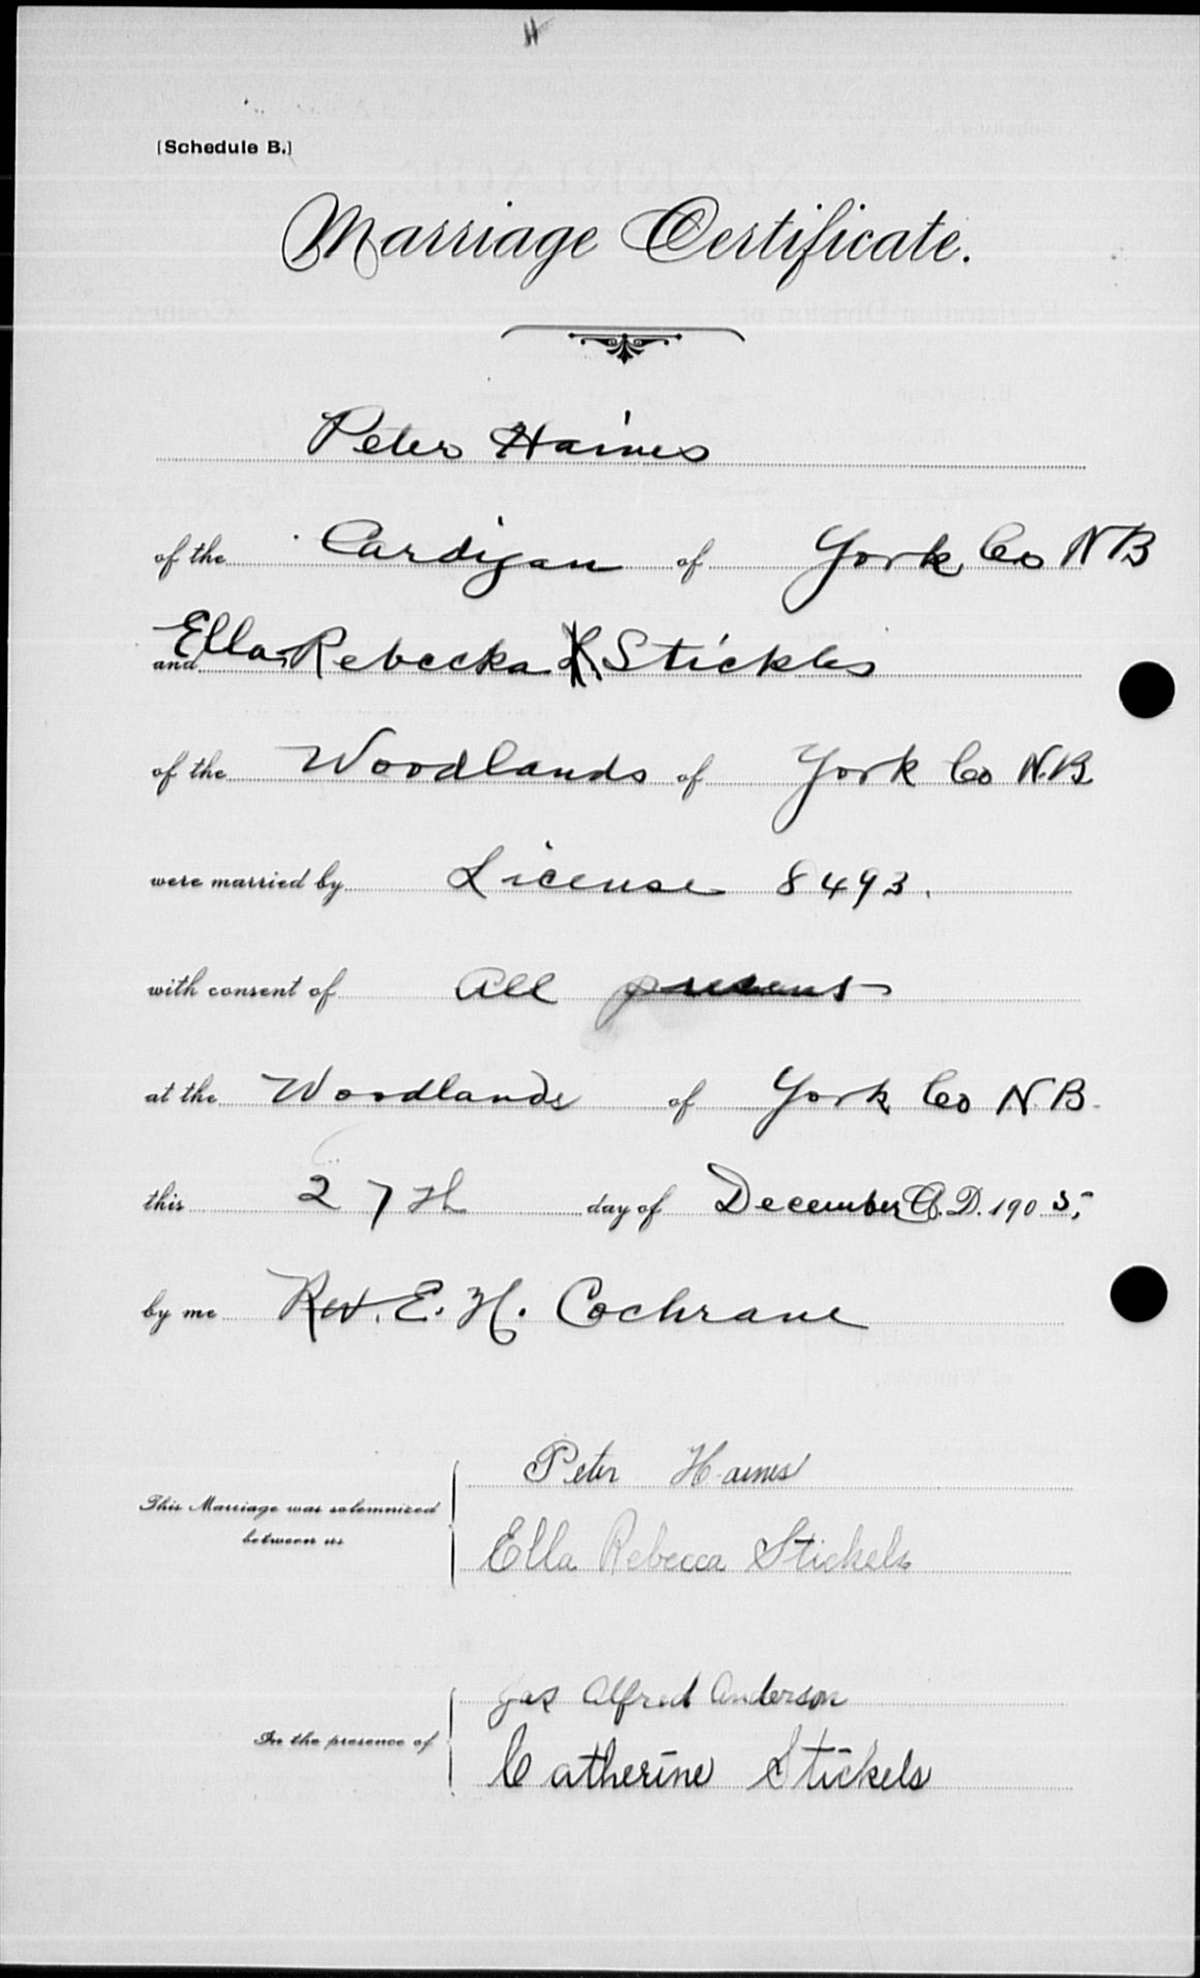 H
[Schedule B.]
Marriage Certificate.
Peter Haines
of the Cardigan of York Co NB
and Ella Rebecka Stickles
of the Woodlands of York Co N.B.
were married by License 8493.
with consent of all
at the Woodlands of York Co N.B.
this 27th day of December A.D. 1905,
by me Rev. E. H. Cochrane
This Marriage was solemnized
between us
Peter Haines
Ella Rebecca Stickels
In the presence of
Jas Alfred Anderson
Catherine Stickels